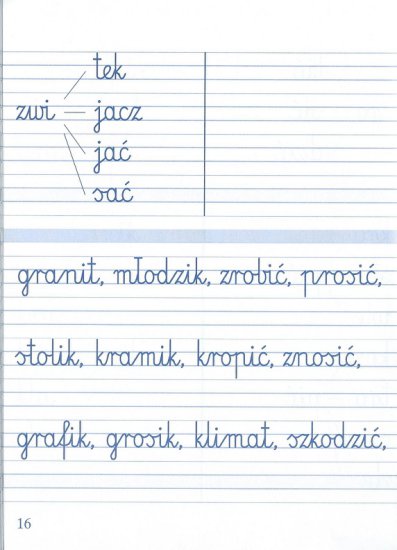 tek
zwi — jacz
jać
sać
granit, młodzik, zrobić, prosić,
stolik, kramik, kropić, znosić,
grafik, grosik, klimat, szkodzić,
16